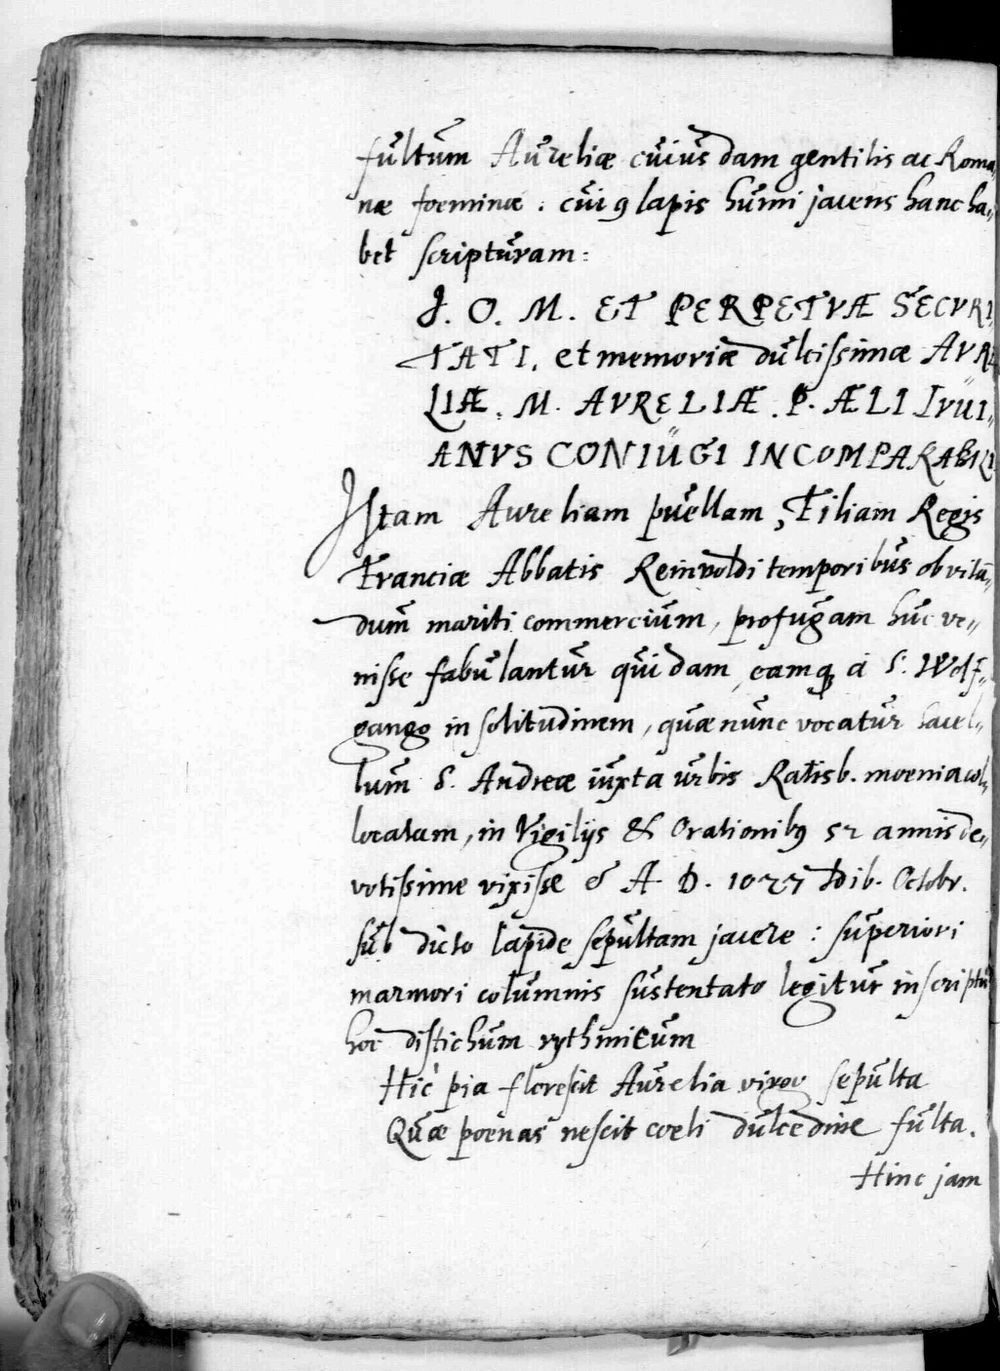 fultum Aureliæ cuiusdam gentilis ac Roma,,
næ foeminæ : cui9 lapis humi jacens hanc ha,,
bet scripturam :
J. O. M. ET PERPETVÆ SECVRI,,
TATI. et memoriæ dulcissimæ AVRE
LIÆ. M. AVRELIÆ. P. ÆLI IVUI,,
ANVS CONIUGI INCOMPARABILI
Istam Aureliam puellam, Filiam Regis
Franciæ Abbatis Reinvoldi temporibus ob vitā,,
dum mariti commercium, profugam huc ve,,
nisse fabulantur quidam, eamq; a S. Wolf,,
gango in solitudinem, quæ nunc vocatur sacel,,
lum S. Andreæ iuxta urbis Ratisb. moenia col,,
locatam, in Vigilijs & Orationib9 52 annis de,,
votissime vixisse & A. D. 1027 Idib. Octobr.
sub dicto lapide sepultam jacere : superiori
marmori columnis sustentato legitur inscriptū
hoc distichum rythmicum
Hic pia florescit Aurelia virgo sepulta
Quæ poenas nescit coeli dulcedine fulta.
Hinc jam